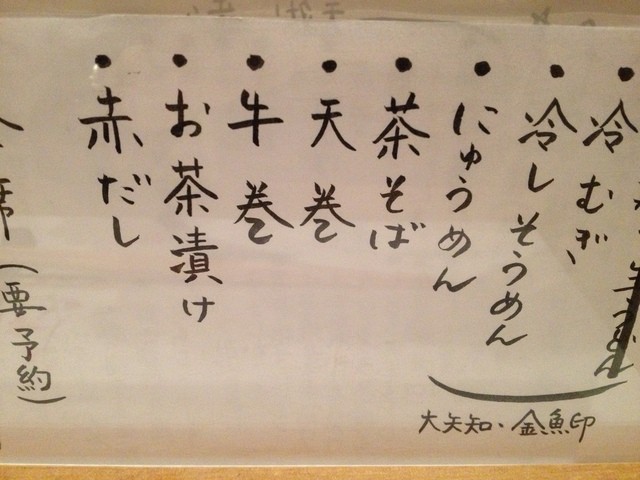 冷むぎ
冷しそうめん
にゅうめん
大矢知・金魚印
茶そば
天巻
牛巻
お茶漬け
赤だし
席(要予約)